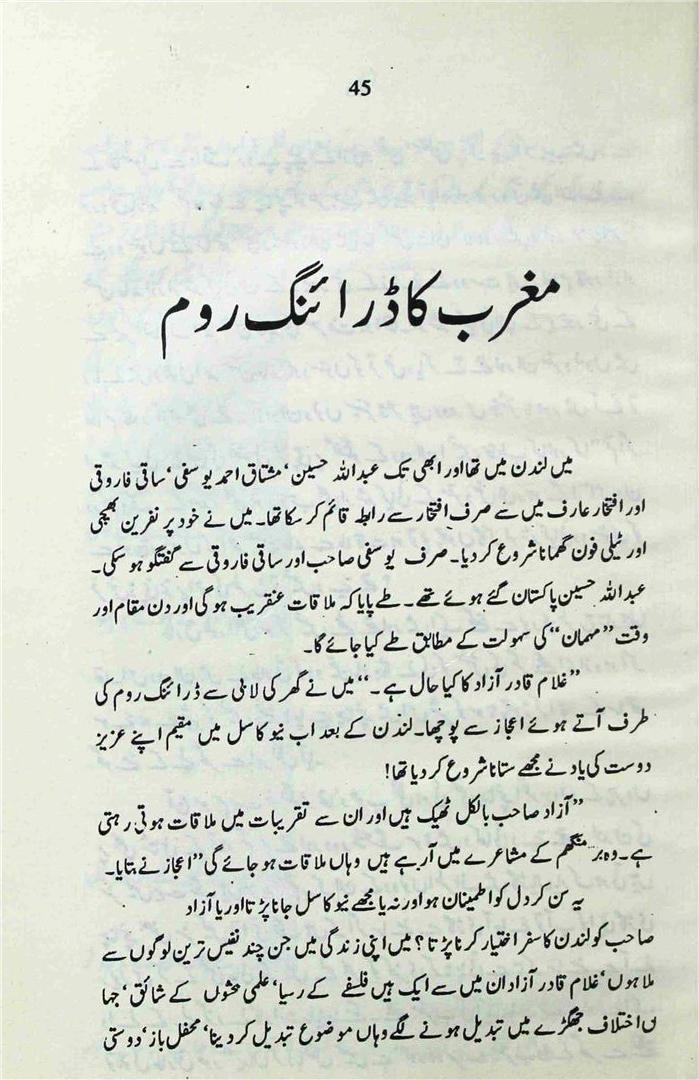 45
مغرب کا ڈرائنگ روم
میں لندن میں تھا اور ابھی تک عبداللہ حسین، مشتاق احمد یوسفی، ساقی فاروقی
اور افتخار عارف میں سے صرف افتخار سے رابطہ قائم کر سکا تھا۔ میں نے خود پر نفرین بھیجی
اور ٹیلی فون گھمانا شروع کر دیا۔ صرف یوسفی صاحب اور ساقی فاروقی سے گفتگو ہو سکی۔
عبداللہ حسین پاکستان گئے ہوئے تھے۔ طے پایا کہ ملاقات عنقریب ہو گی اور دن مقام اور
وقت ”مہمان“ کی سہولت کے مطابق طے کیا جائے گا۔
”غلام قادر آزاد کا کیا حال ہے۔“ میں نے گھر کی لابی سے ڈرائنگ روم کی
طرف آتے ہوئے اعجاز سے پوچھا۔ لندن کے بعد اب نیو کاسل میں مقیم اپنے عزیز
دوست کی یاد نے مجھے ستانا شروع کر دیا تھا!
”آزاد صاحب بالکل ٹھیک ہیں اور ان سے تقریبات میں ملاقات ہوتی رہتی
ہے۔ وہ برمنگھم کے مشاعرے میں آ رہے ہیں وہاں ملاقات ہو جائے گی“ اعجاز نے بتایا۔
یہ سن کر دل کو اطمینان ہوا ورنہ یا مجھے نیو کاسل جانا پڑتا اور یا آزاد
صاحب کو لندن کا سفر اختیار کرنا پڑتا؟ میں اپنی زندگی میں جن چند نفیس ترین لوگوں سے
ملا ہوں، غلام قادر آزاد ان میں سے ایک ہیں فلسفے کے رسیا، علمی بحثوں کے شائق، جہا
ں اختلاف جھگڑے میں تبدیل ہونے لگے وہاں موضوع تبدیل کر دینا، محفل باز، دوستی